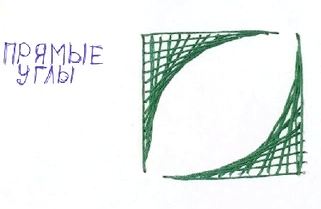 ПРЯМЫЕ
УГЛЫ